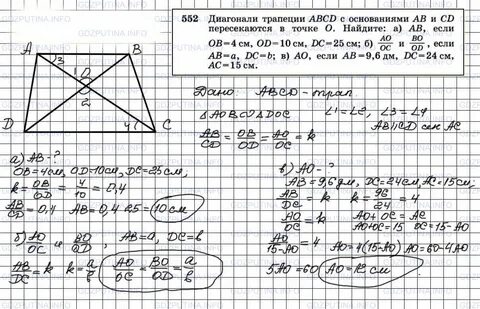 552 Диагонали трапеции ABCD с основаниями AB и CD
пересекаются в точке O. Найдите: а) AB, если
OB=4 см, OD=10 см, DC=25 см; б) AO/OC и BO/OD, если
AB=a, DC=b; в) AO, если AB=9,6 дм, DC=24 см,
AC=15 см.
A B
3
1 O
2
D 4 C
Дано: ABCD-трап.
△AOB∽△DOC ∠1=∠2, ∠3=∠4
AB∥CD сек AC
AB/CD = OB/OD = AO/OC = k
а) AB-?
OB=4см, OD=10см, DC=25см,
k = OB/OD = 4/10 = 0,4
AB/CD = 0,4 AB=0,4·25=10см
б) AO/OC и BO/OD, AB=a, DC=b
AB/DC = k k = a/b AO/OC = BO/OD = a/b
в) AO-?
AB=9,6дм, DC=24см, AC=15см,
AB/DC = k k = 96/24 = 4
AO/OC = k AO+OC=AC
AO+OC=15 OC=15-AO
AO/15-AO = 4 AO=4(15-AO) AO=60-4AO
5AO=60 AO=12см